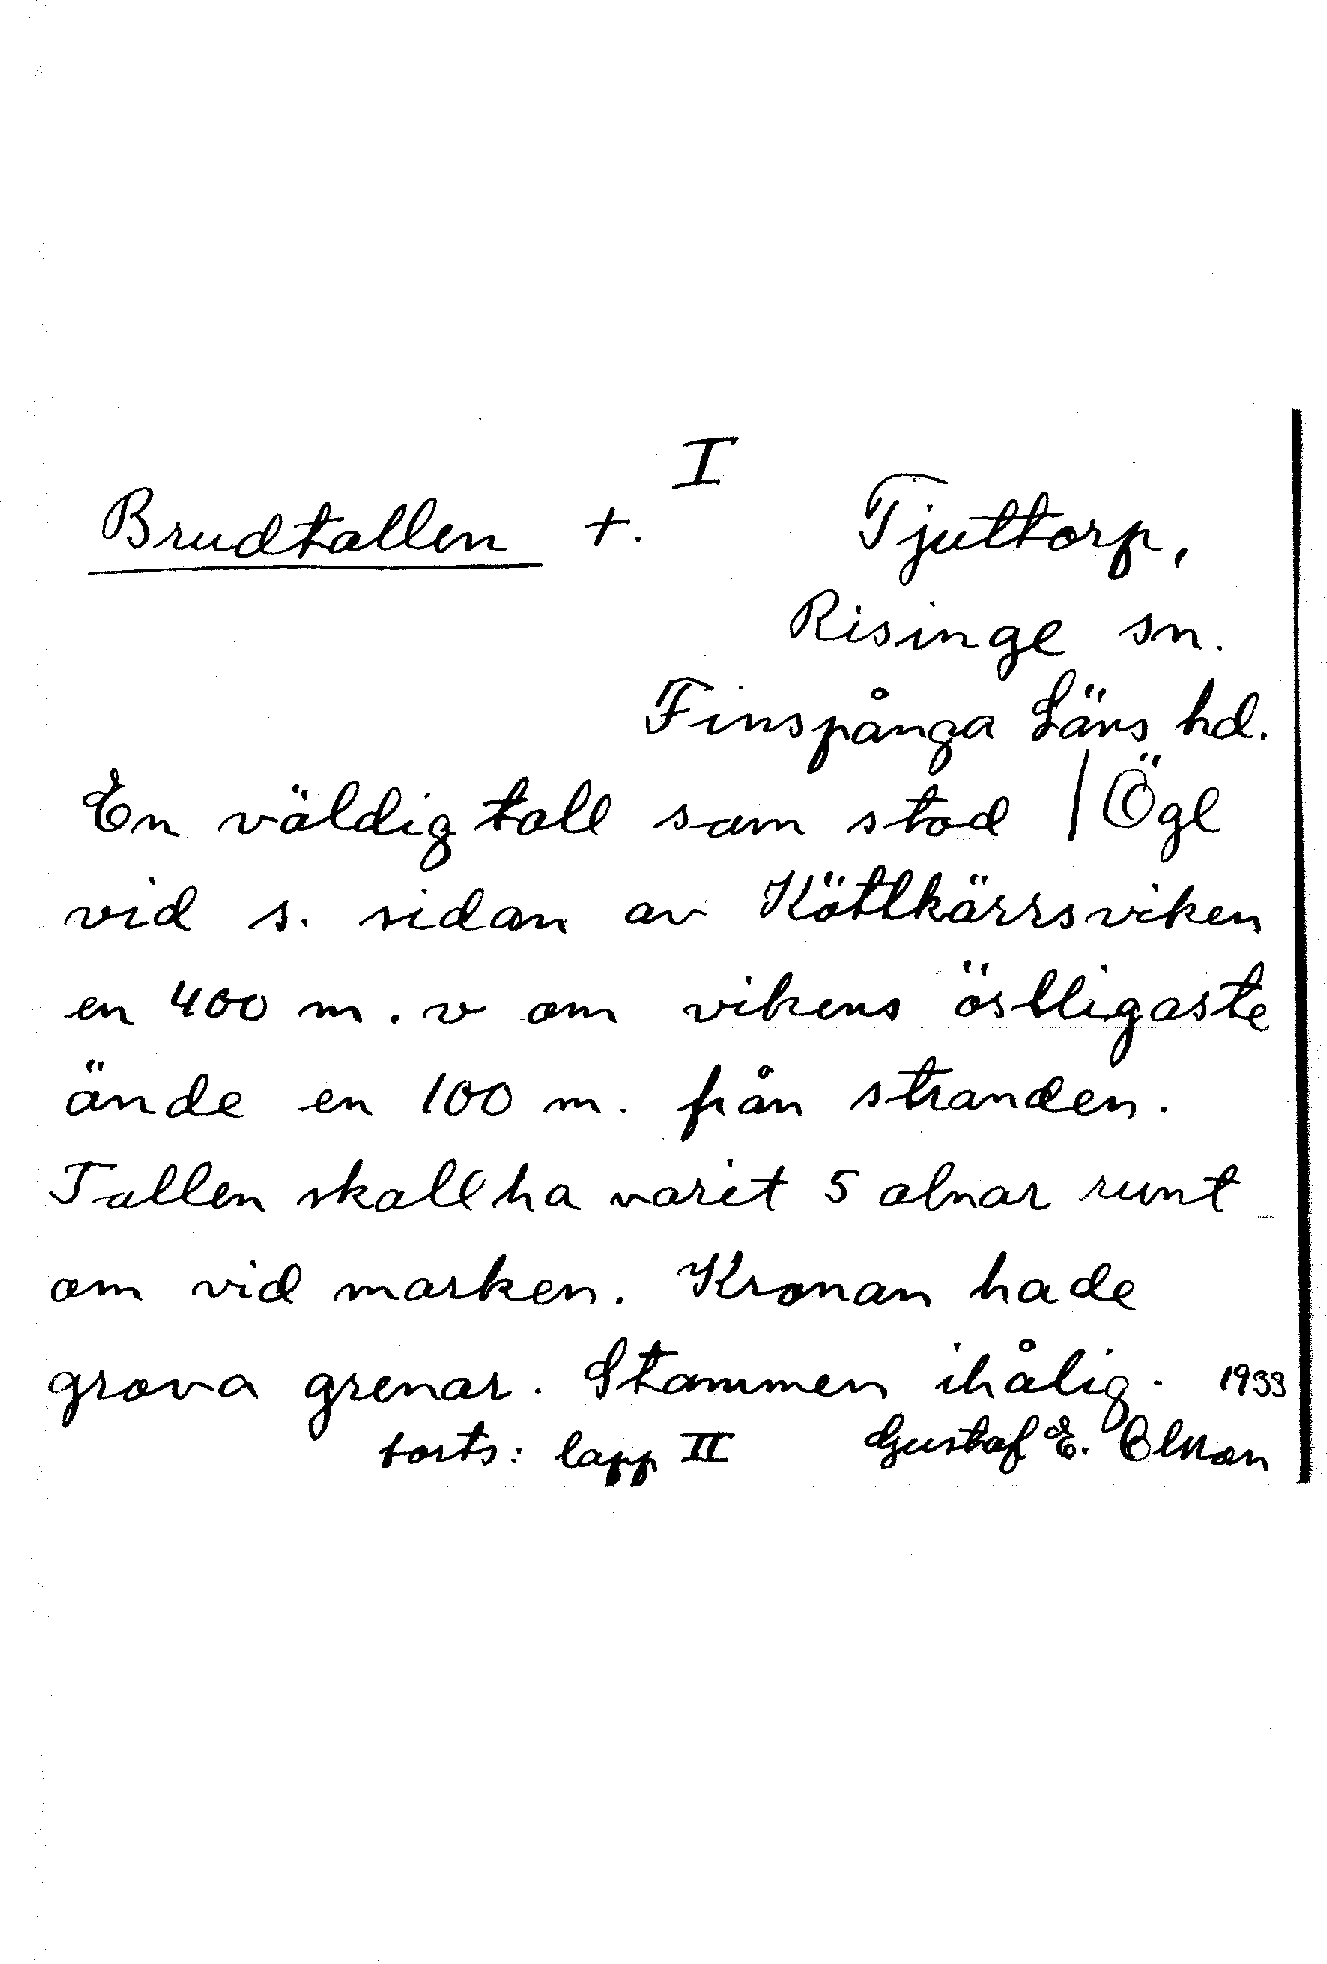 I
Brudtallen +. Tjuttorp,
Risinge sn.
Finspånga Läns hd.
En väldig tall som stod / Ögl
vid s. sidan av Köttkärrsviken
en 400 m. v om vikens östligaste
ände en 100 m. från stranden.
Tallen skall ha varit 5 alnar runt
om vid marken. Kronan hade
grova grenar. Stammen ihålig. 1933
forts: lapp II Gustaf E. Olsson